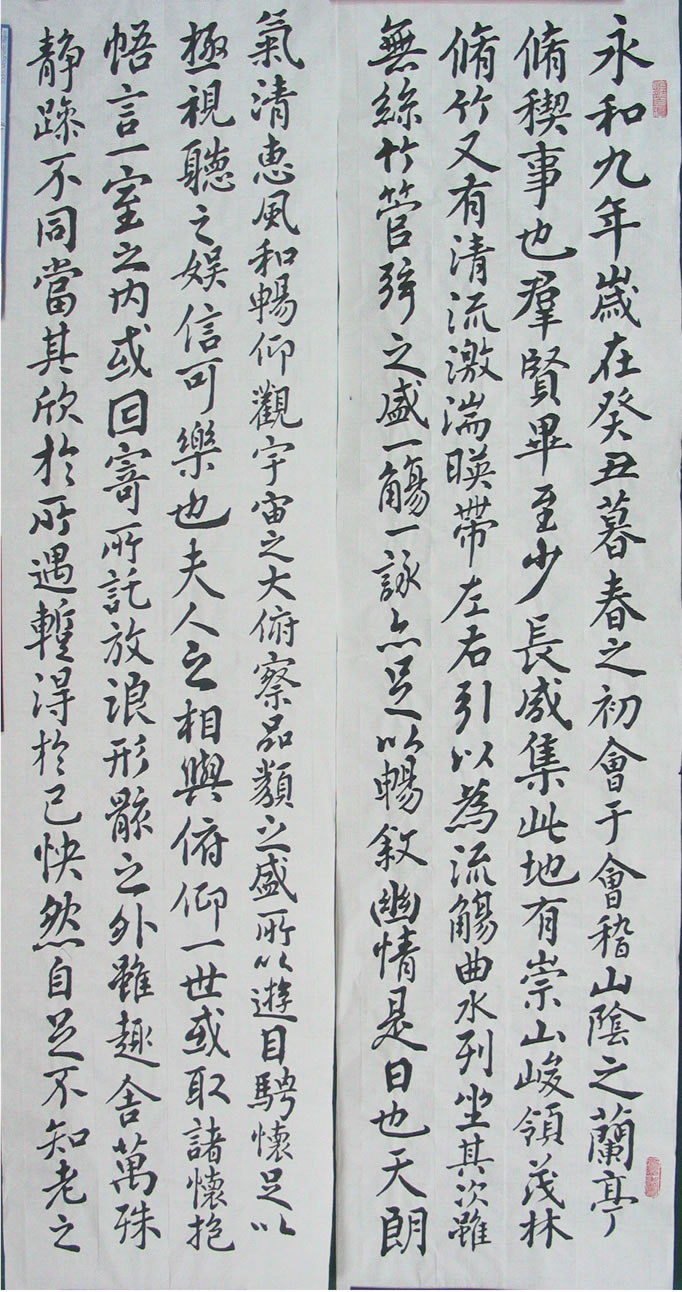 永和九年歲在癸丑暮春之初會于會稽山陰之蘭亭
脩稧事也羣賢畢至少長咸集此地有崇山峻領茂林
脩竹又有清流激湍暎帶左右引以為流觴曲水列坐其次雖
無絲竹管弦之盛一觴一詠亦足以暢敘幽情是日也天朗
氣清惠風和暢仰觀宇宙之大俯察品類之盛所以遊目騁懷足以
極視聽之娛信可樂也夫人之相與俯仰一世或取諸懷抱
悟言一室之內或因寄所託放浪形骸之外雖趣舍萬殊
靜躁不同當其欣於所遇暫得於己怏然自足不知老之